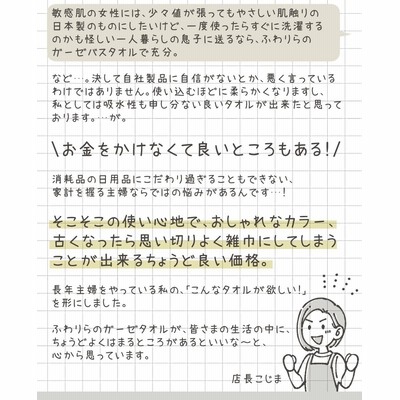 敏感肌の女性には、少々値が張ってもやさしい肌触りの
日本製のものにしたいけど、一度使ったらすぐに洗濯する
のかも怪しい一人暮らしの息子に送るなら、ふわりらの
ガーゼバスタオルで充分。
など…。決して自社製品に自信がないとか、悪く言っている
わけではありません。使い込むほどに柔らかくなりますし、
私としては吸水性も申し分ない良いタオルが出来たと思って
おります。…が。
\お金をかけなくて良いところもある!/
消耗品の日用品にこだわり過ぎることもできない、
家計を握る主婦ならではの悩みがあるんです…!
そこそこの使い心地で、おしゃれなカラー、
古くなったら思い切りよく雑巾にしてしまう
ことが出来るちょうど良い価格。
長年主婦をやっている私の、「こんなタオルが欲しい!」
を形にしました。
ふわりらのガーゼタオルが、皆さまの生活の中に、
ちょうどよくはまるところがあるといいな〜と、
心から思っています。
店長こじま